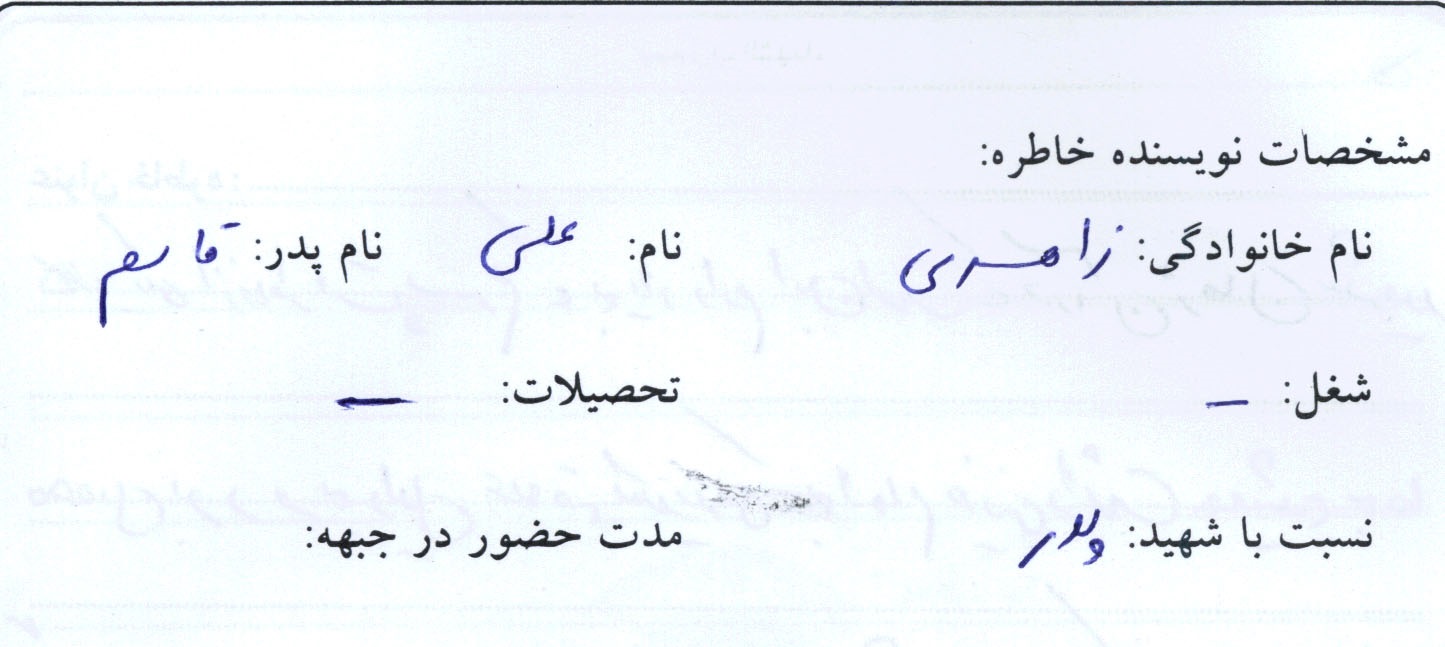 مشخصات نویسنده خاطره:
نام خانوادگی: زاهدی نام: علی نام پدر: قاسم
شغل: – تحصیلات: –
نسبت با شهید: پدر مدت حضور در جبهه: